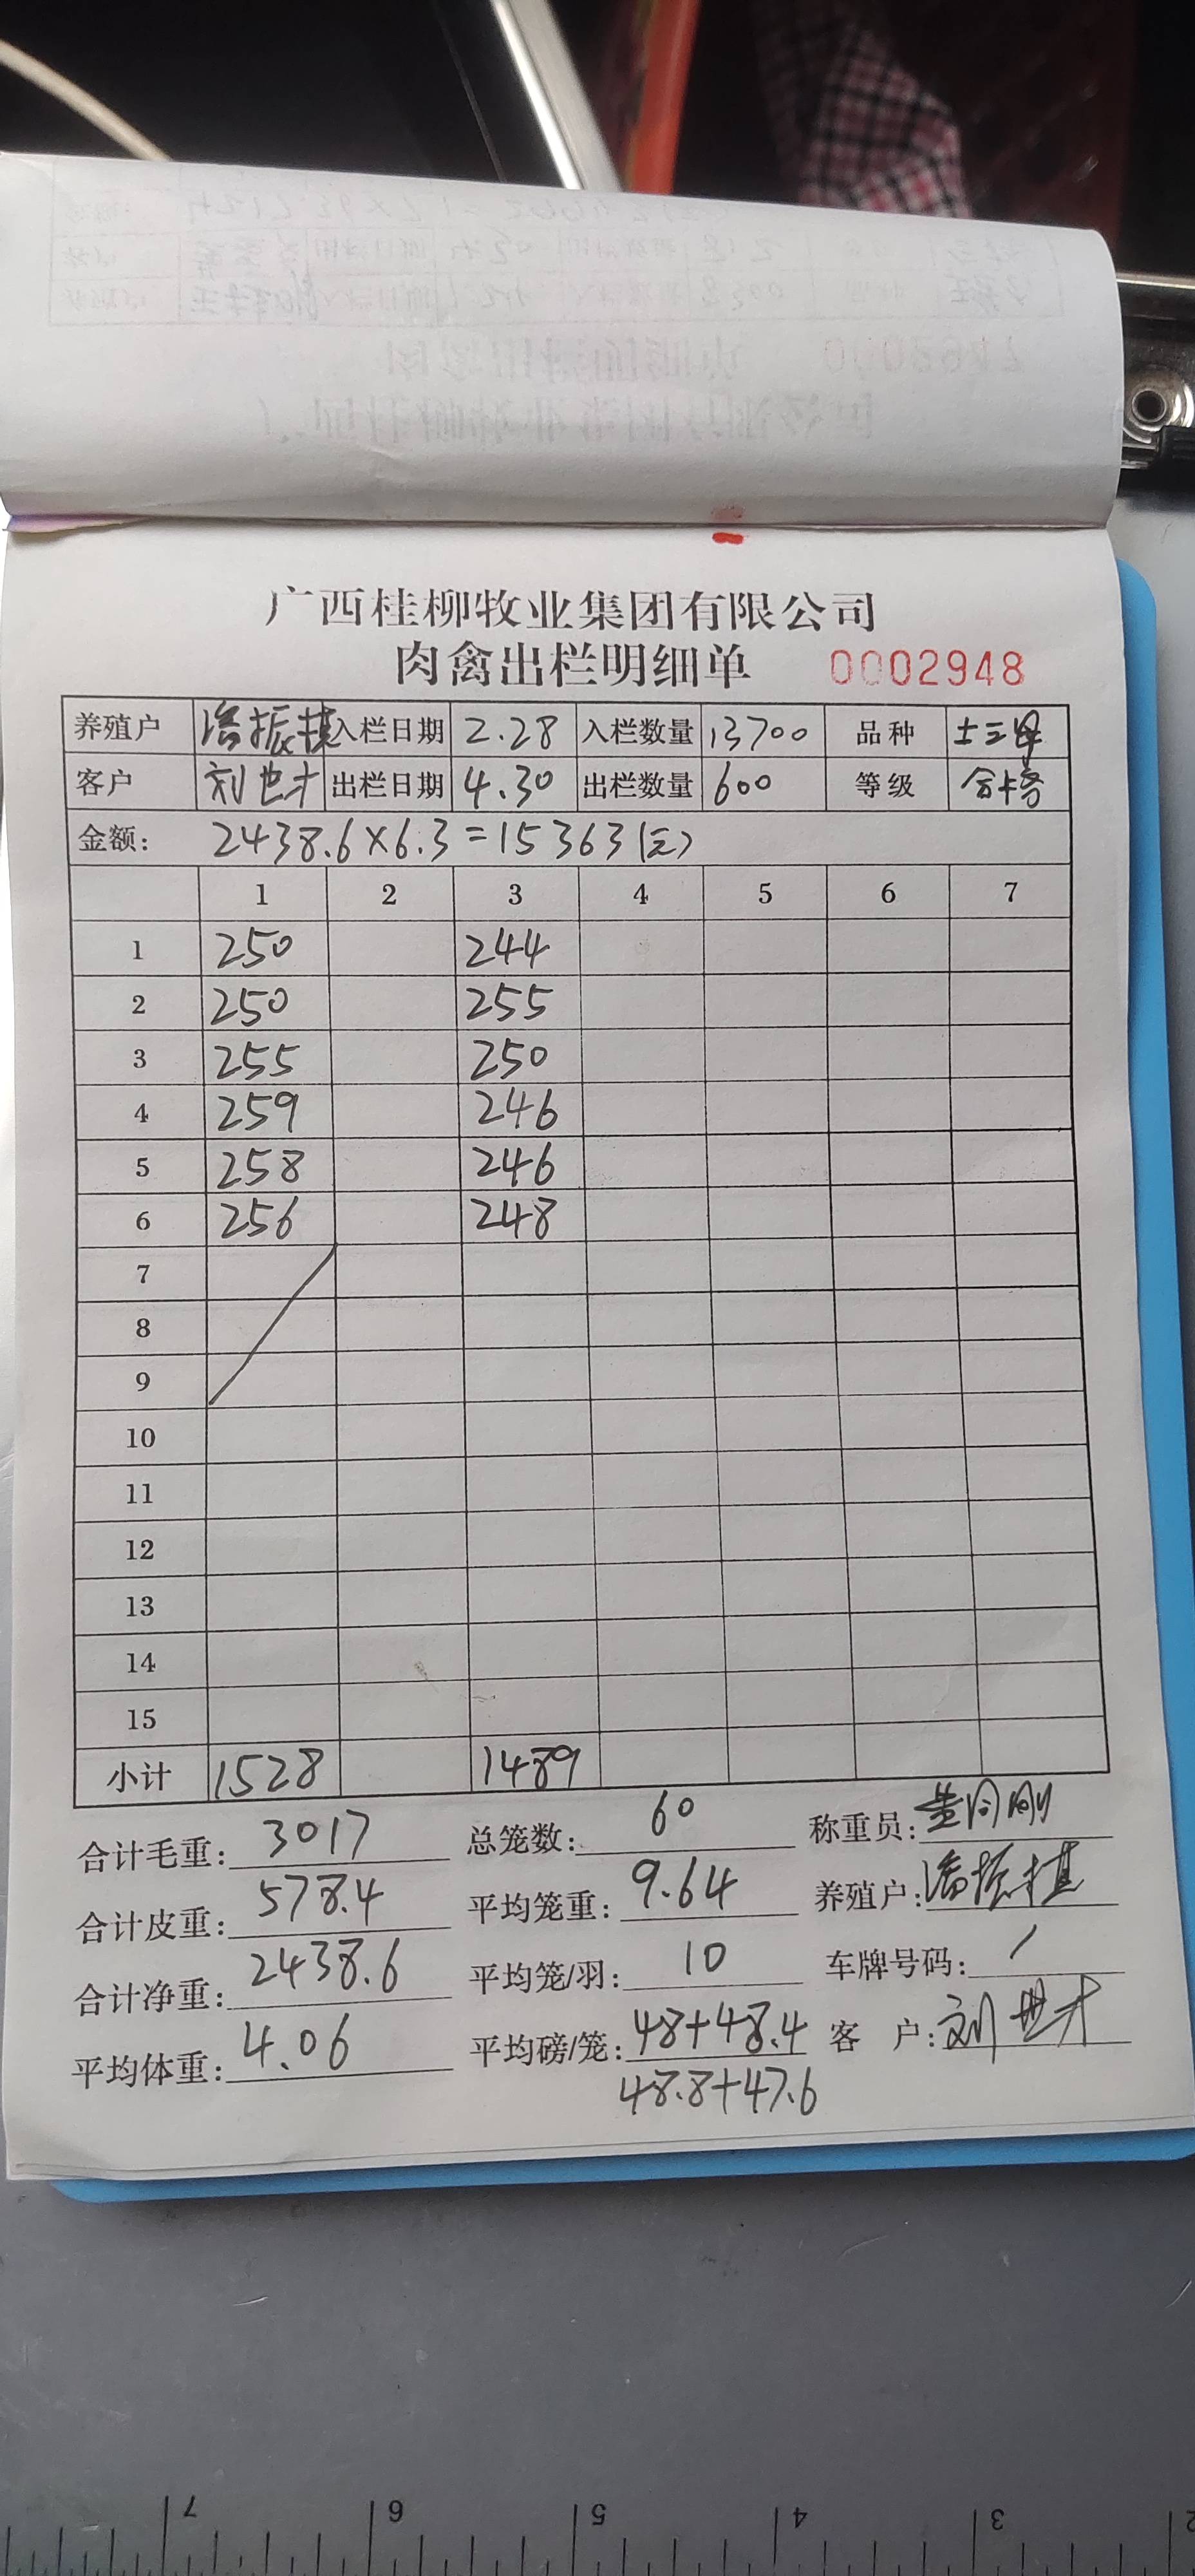 广西桂柳牧业集团有限公司
肉禽出栏明细单 0002948
养殖户 潘振植 入栏日期 2.28 入栏数量 13700 品种
客户 刘世才 出栏日期 4.30 出栏数量 600 等级 合格
金额: 2438.6×6.3=15363(元)
1 2 3 4 5 6 7
1 250 244
2 250 255
3 255 250
4 259 246
5 258 246
6 256 248
7
8
9
10
11
12
13
14
15
小计 1528 1489
合计毛重: 3017 总笼数: 60 称重员:
合计皮重: 578.4 平均笼重: 9.64 养殖户: 潘振植
合计净重: 2438.6 平均笼/羽: 10 车牌号码: /
平均体重: 4.06 平均磅/笼: 48+48.4 客 户: 刘世才
48.8+47.6
7 6 5 4 3 2